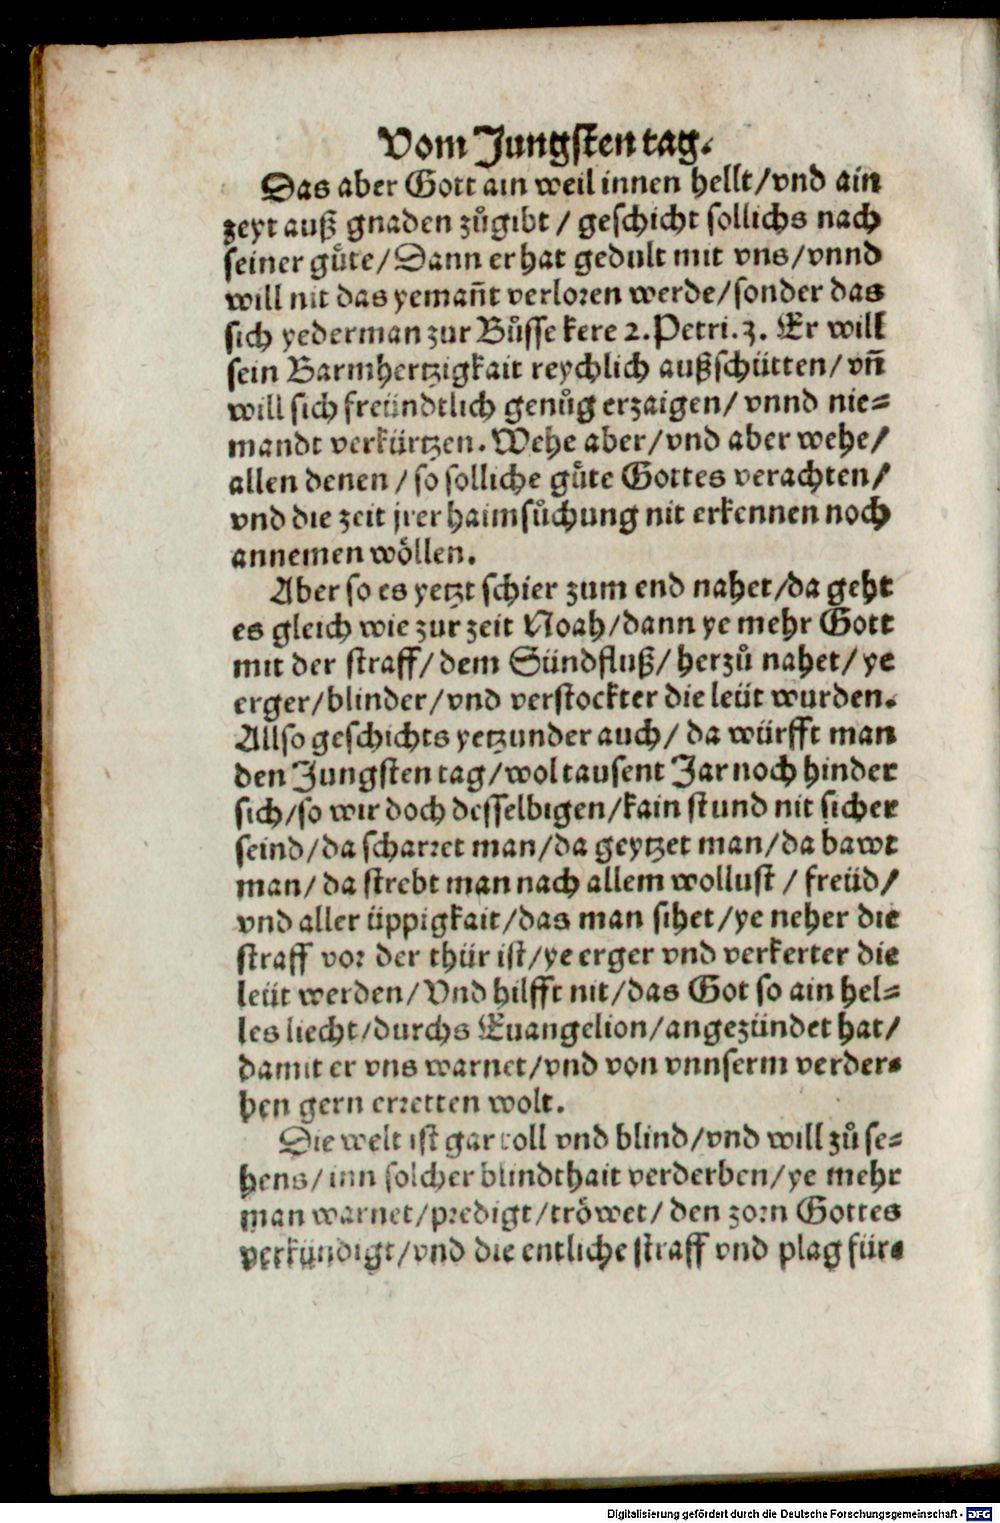 Vom Jungsten tag.
Das aber Gott ain weil innen hellt/vnd ain
zeyt auß gnaden zůgibt / geschicht sollichs nach
seiner gůte/Dann er hat gedult mit vns/vnnd
will nit das yemañt verloren werde/sonder das
sich yederman zur Bůsse kere 2.Petri.3. Er will
sein Barmhertzigkait reychlich außschütten/vñ
will sich freündtlich genůg erzaigen/vnnd nie-
mandt verkürtzen. Wehe aber/vnd aber wehe/
allen denen / so solliche gůte Gottes verachten/
vnd die zeit jrer haimsůchung nit erkennen noch
annemen wöllen.
Aber so es yetzt schier zum end nahet/da geht
es gleich wie zur zeit Noah/dann ye mehr Gott
mit der straff/dem Sündfluß/herzů nahet/ye
erger/blinder/vnd verstockter die leüt wurden.
Allso geschichts yetzunder auch/ da würfft man
den Jungsten tag/wol tausent Jar noch hinder
sich/so wir doch desselbigen/kain stund nit sicher
seind/da scharret man/da geytzet man/da bawt
man/da strebt man nach allem wollust / freüd/
vnd aller üppigkait/das man sihet/ye neher die
straff vor der thür ist/ye erger vnd verkerter die
leüt werden/Vnd hilfft nit/das Got so ain hel-
les liecht/durchs Euangelion/angezündet hat/
damit er vns warnet/vnd von vnnserm verder-
ben gern erretten wolt.
Die welt ist gar toll vnd blind/vnd will zů se-
hens/inn solcher blindthait verderben/ye mehr
man warnet/predigt/tröwet/den zorn Gottes
verkündigt/vnd die entliche straff vnd plag für-
Digitalisierung gefördert durch die Deutsche Forschungsgemeinschaft - DFG